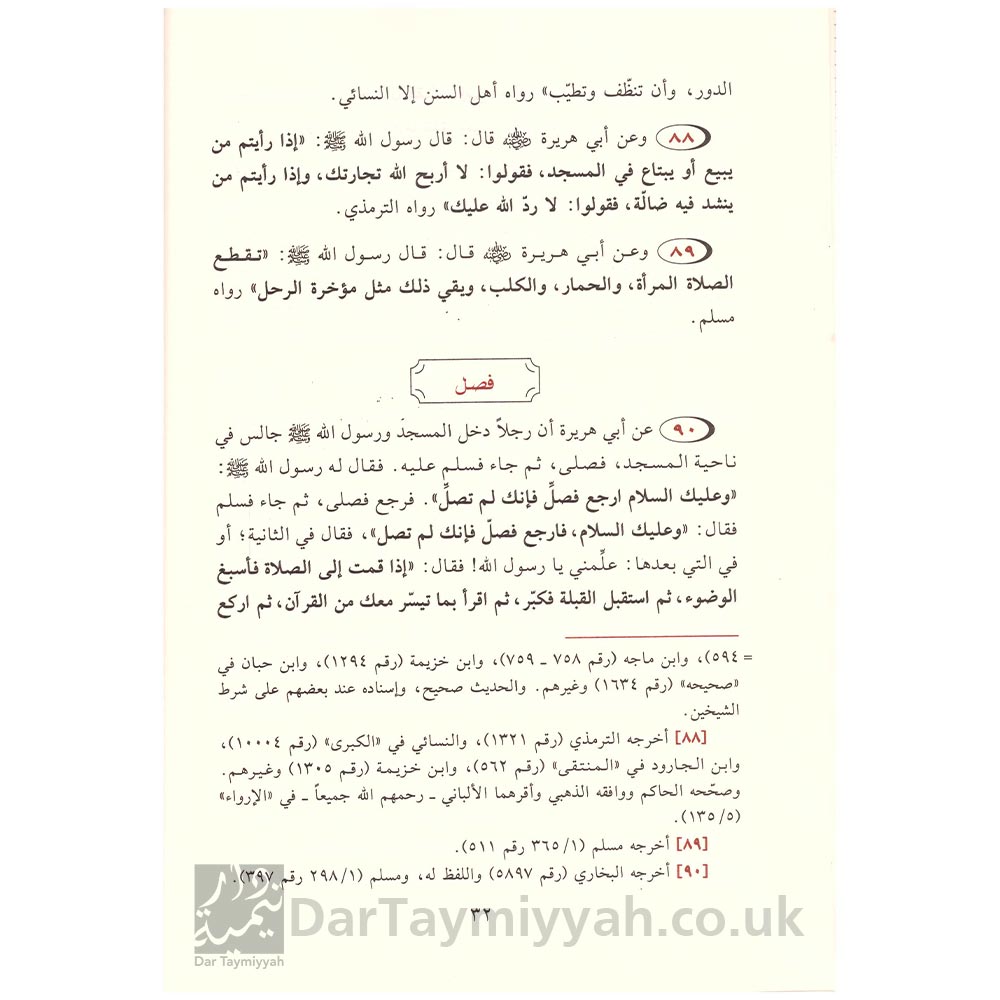 الدور، وأن تنظّف وتطيّب» رواه أهل السنن إلا النسائي.
٨٨ وعن أبي هريرة رضي الله عنه قال: قال رسول الله ﷺ: «إذا رأيتم من
يبيع أو يبتاع في المسجد، فقولوا: لا أربح الله تجارتك، وإذا رأيتم من
ينشد فيه ضالّة، فقولوا: لا ردّ الله عليك» رواه الترمذي.
٨٩ وعن أبي هريرة رضي الله عنه قال: قال رسول الله ﷺ: «تقطع
الصلاة المرأة، والحمار، والكلب، ويقي ذلك مثل مؤخرة الرحل» رواه
مسلم.
فصل
٩٠ عن أبي هريرة أن رجلاً دخل المسجد ورسول الله ﷺ جالس في
ناحية المسجد، فصلى، ثم جاء فسلم عليه. فقال له رسول الله ﷺ:
«وعليك السلام ارجع فصلِّ فإنك لم تصلِّ». فرجع فصلى، ثم جاء فسلم
فقال: «وعليك السلام، فارجع فصلّ فإنك لم تصل»، فقال في الثانية؛ أو
في التي بعدها: علِّمني يا رسول الله! فقال: «إذا قمت إلى الصلاة فأسبغ
الوضوء، ثم استقبل القبلة فكبّر، ثم اقرأ بما تيسّر معك من القرآن، ثم اركع
= ٥٩٤)، وابن ماجه (رقم ٧٥٨ ـ ٧٥٩)، وابن خزيمة (رقم ١٢٩٤)، وابن حبان في
«صحيحه» (رقم ١٦٣٤) وغيرهم. والحديث صحيح، وإسناده عند بعضهم على شرط
الشيخين.
[٨٨] أخرجه الترمذي (رقم ١٣٢١)، والنسائي في «الكبرى» (رقم ١٠٠٠٤)،
وابن الجارود في «المنتقى» (رقم ٥٦٢)، وابن خزيمة (رقم ١٣٠٥) وغيرهم.
وصحّحه الحاكم ووافقه الذهبي وأقرهما الألباني ـ رحمهم الله جميعاً ـ في «الإرواء»
(٥/ ١٣٥).
[٨٩] أخرجه مسلم (١/ ٣٦٥ رقم ٥١١).
[٩٠] أخرجه البخاري (رقم ٥٨٩٧) واللفظ له، ومسلم (١/ ٢٩٨ رقم ٣٩٧).
٣٢
دار تيمية
Dar Taymiyyah
DarTaymiyyah.co.uk